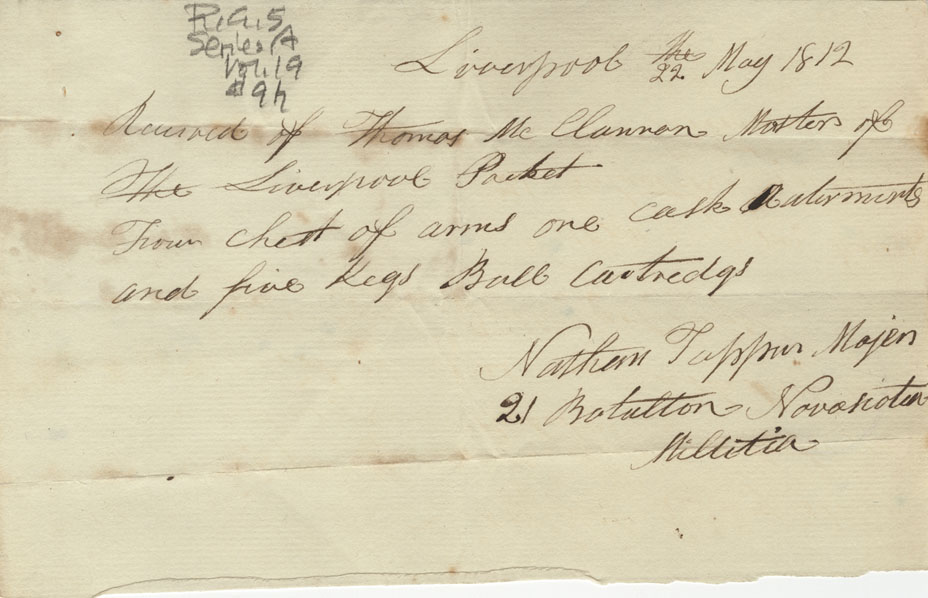 R.G.5
Series A
Vol. 19
# 94
Liverpool the 22 May 1812
Received of Thomas McClannan Master of
The Liverpool Packet
Four Chest of arms one Cask
and five Kegs Ball Cartredgs
Nathan Tupper Majer
21 Batallton Novascotia
Millitia